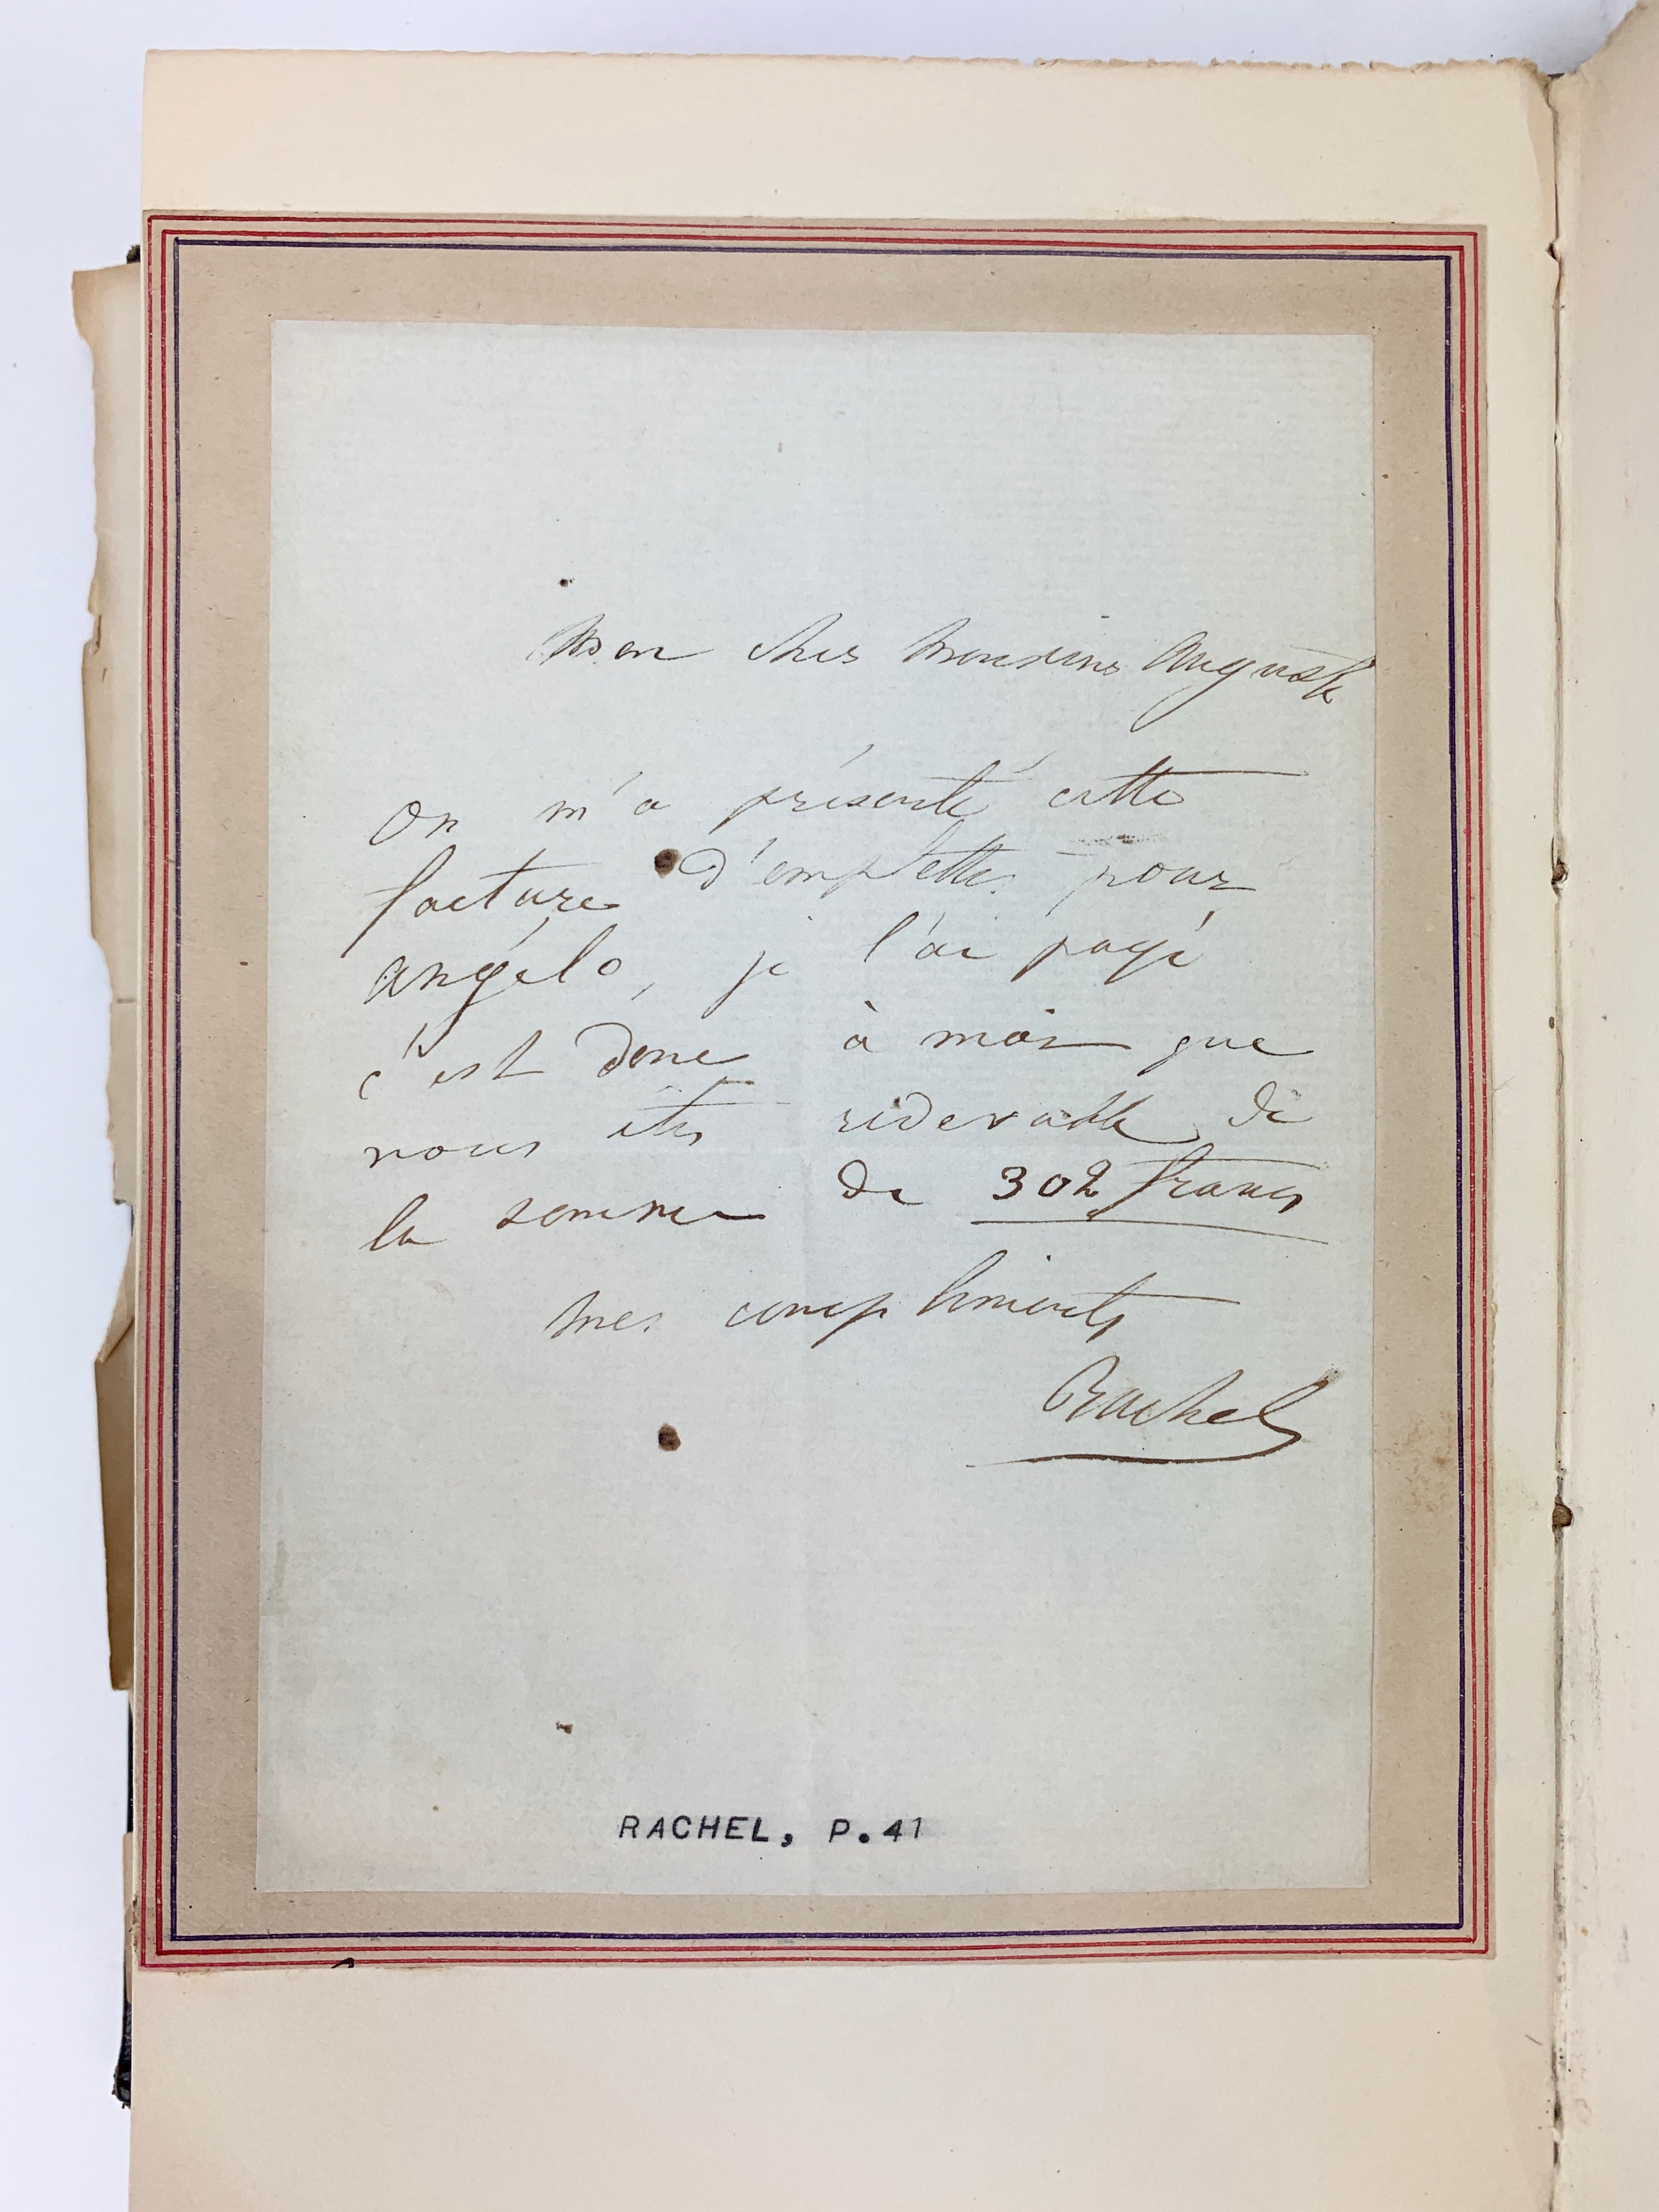 Mon cher Monsieur Auguste
On m'a présenté cette
facture d'emplettes pour
angélo, je l'ai payé
c'est donc à moi que
vous êtes redevable de
la somme de 302 francs
mes compliments
Rachel
RACHEL, P.41